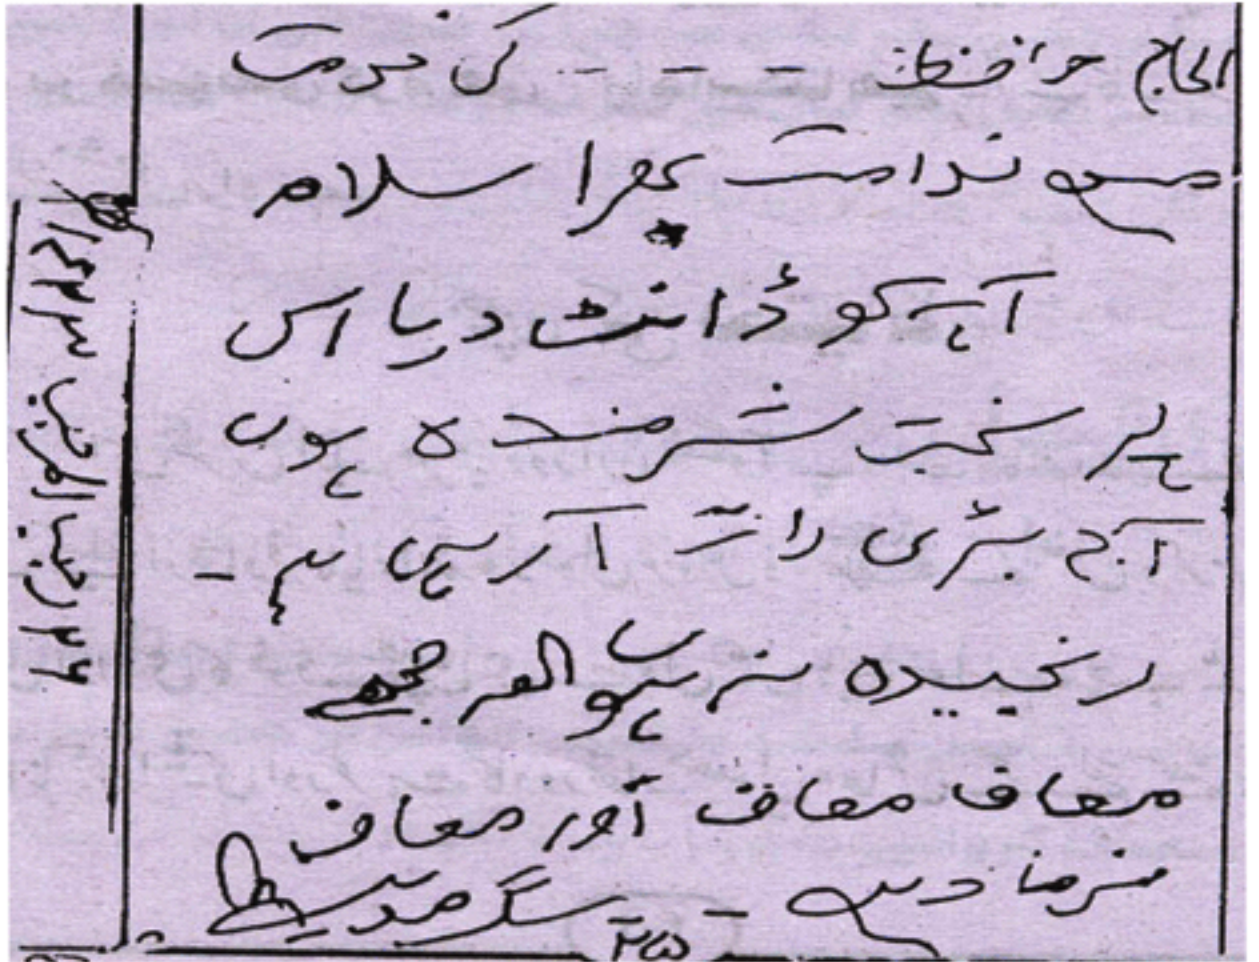 الحاج حافظ - - - - - کی خدمت
میں ندامت بھرا سلام
آپ کو ڈانٹ دیا اس
پر سخت شرمندہ ہوں
آج بڑی رات آ رہی ہے -
رنجیدہ نہ ہوں اور مجھے
معاف معاف اور معاف
فرما دیں - سگ مدینہ